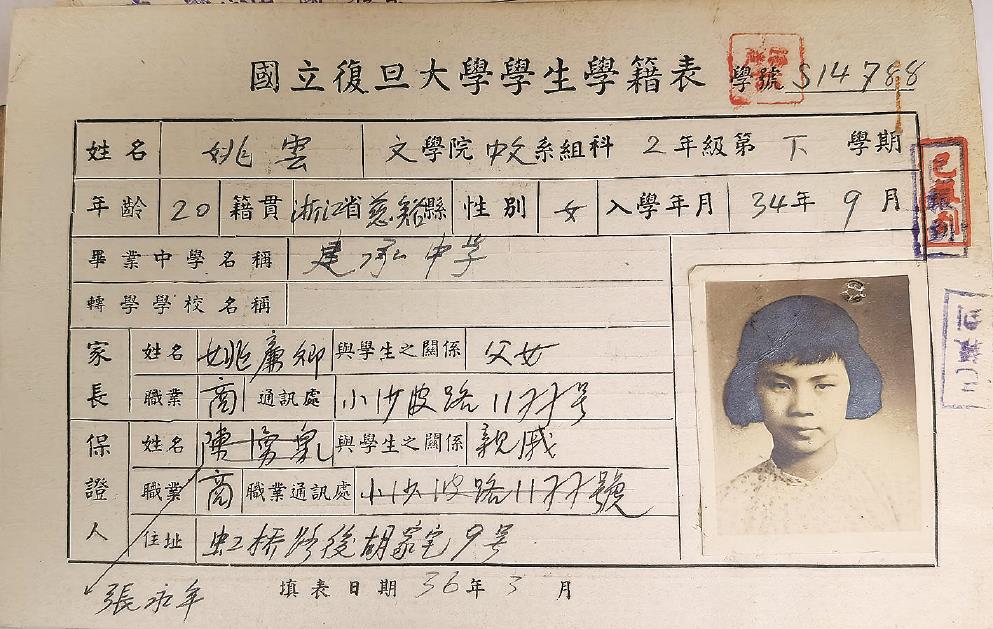 國立復旦大學學生學籍表 學號 S14788
姓名 姚雲 文學院 中文系組科 2年級第 下 學期
年齡 20 籍貫 浙江省慈谿縣 性別 女 入學年月 34年 9月
畢業中學名稱 建承中学
轉學學校名稱
家長 姓名 姚廉卿 與學生之關係 父女
職業 商 通訊處 小沙渡路1177号
保證人 姓名 陳 與學生之關係 親戚
職業 商 職業通訊處 小沙渡路1177號
住址 虹橋路後胡家宅9号
張永年 填表日期 36年3月